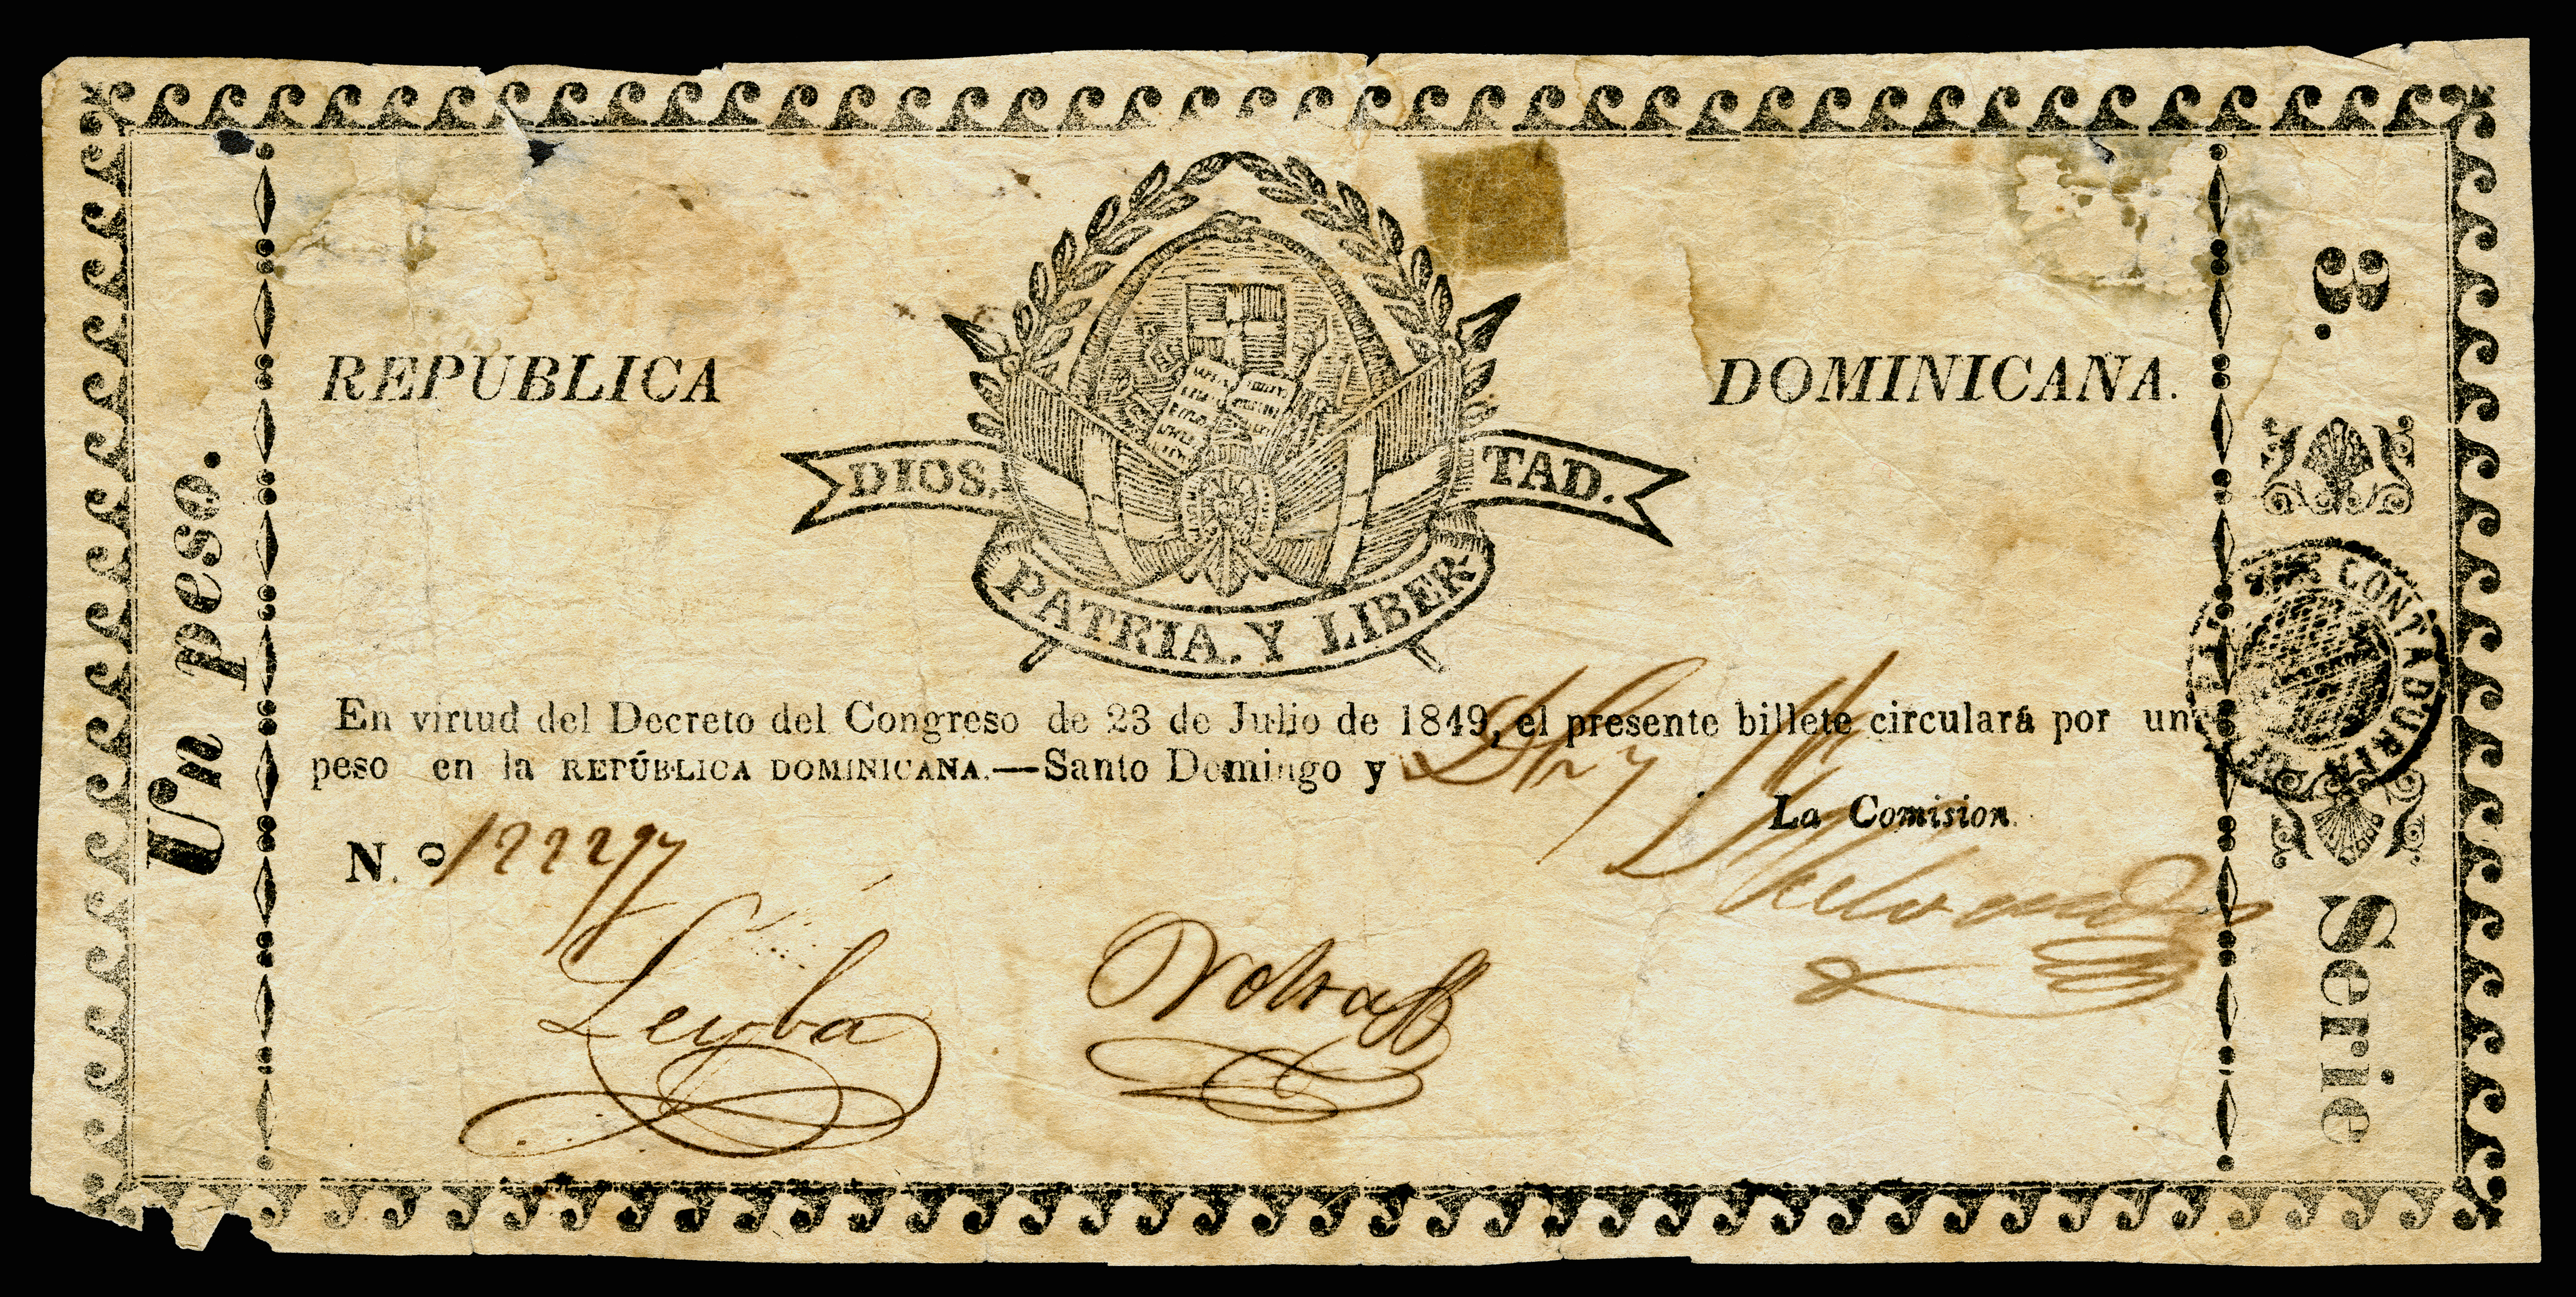 REPUBLICA DOMINICANA.
DIOS, PATRIA. Y LIBERTAD.
Un peso.
En virtud del Decreto del Congreso de 23 de Julio de 1849, el presente billete circulará por un
peso en la REPÚBLICA DOMINICANA.—Santo Domingo y
La Comision.
N.º 122297
Leyba
Serie 3.
CONTADURIA